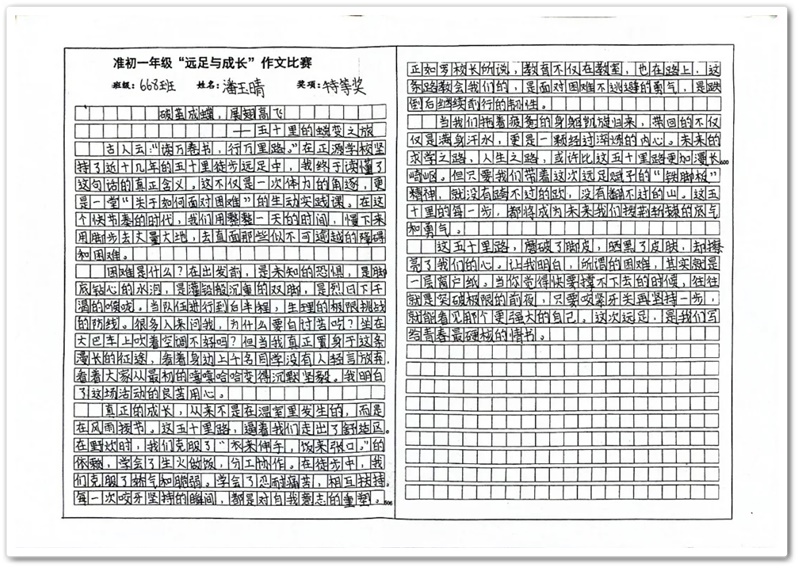 准初一年级“远足与成长”作文比赛
班级：668班 姓名：潘玉晴 奖项：特等奖
破茧成蝶，展翅高飞
——五十里的蜕变之旅
古人云“读万卷书，行万里路。”在正源学校坚
持了近十几年的五十里徒步远足中，我终于读懂了
这句话的真正含义。这不仅是一次体力的角逐，更
是一堂“关于如何面对困难”的生动实践课。在这
个快节奏的时代，我们用整整一天的时间，慢下来
用脚步去丈量大地，去直面那些似不可逾越的障碍
和困难。
困难是什么？在出发前，是未知的恐惧，是脚
底钻心的水泡，是灌铅般沉重的双脚，是烈日下干
渴的喉咙。当队伍进行到后半程，生理的极限挑战
的防线。很多人来问我，为什么要自讨苦吃？坐在
大巴车上吹着空调不好吗？但当我真正置身于这条
漫长的征途，看着身边上千名同学没有人轻言放弃，
看着大家从最初的嘻嘻哈哈变得沉默坚毅。我明白
了这场活动的良苦用心。
真正的成长，从来不是在温室里发生的，而是
在风雨拔节。这五十里路，逼着我们走出了舒适区。
在野炊时，我们克服了“衣来伸手，饭来张口。”的
依赖，学会了生火做饭，分工协作。在徒步中，我
们克服了娇气和脆弱。学会了忍耐痛苦，相互扶持。
每一次咬牙坚持的瞬间，都是对自我意志的重塑。
正如罗校长所说，教育不仅在教室，也在路上，这
条路教会我们的，是面对困难不逃避的勇气，是跌
倒后继续前行的韧性。
当我们拖着疲惫的身躯凯旋归来，带回的不仅
仅是满身汗水，更是一颗经过淬透的内心。未来的
求学之路，人生之路，或许比这五十里路更加漫长
崎岖。但只要我们带着这次远足献予的“铁脚板”
精神，就没有跨不过的坎，没有翻不过的山。这五
十里的每一步，都将成为未来我们披荆斩棘的底气
和勇气。
这五十里路，磨破了脚皮，晒黑了皮肤，却擦
亮了我们的心。让我明白，所谓的困难，其实就是
一层窗户纸。当你觉得快要撑不下去的时候，往往
就是突破极限的前夜，只要咬紧牙关再坚持一步，
就能看见那个更强大的自己。这次远足，是我们写
给青春最硬核的情书。